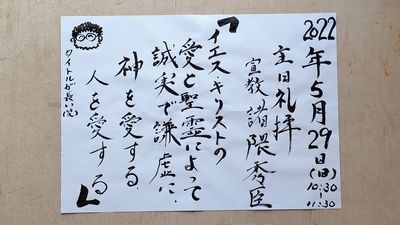 2022年5月29日(日)
10:30
～
11:30
主日礼拝
宣教 諸隈秀臣
「イエス・キリストの
愛と聖霊によって
誠実で謙虚に
神を愛する
人を愛する」
タイトルが長い(笑)